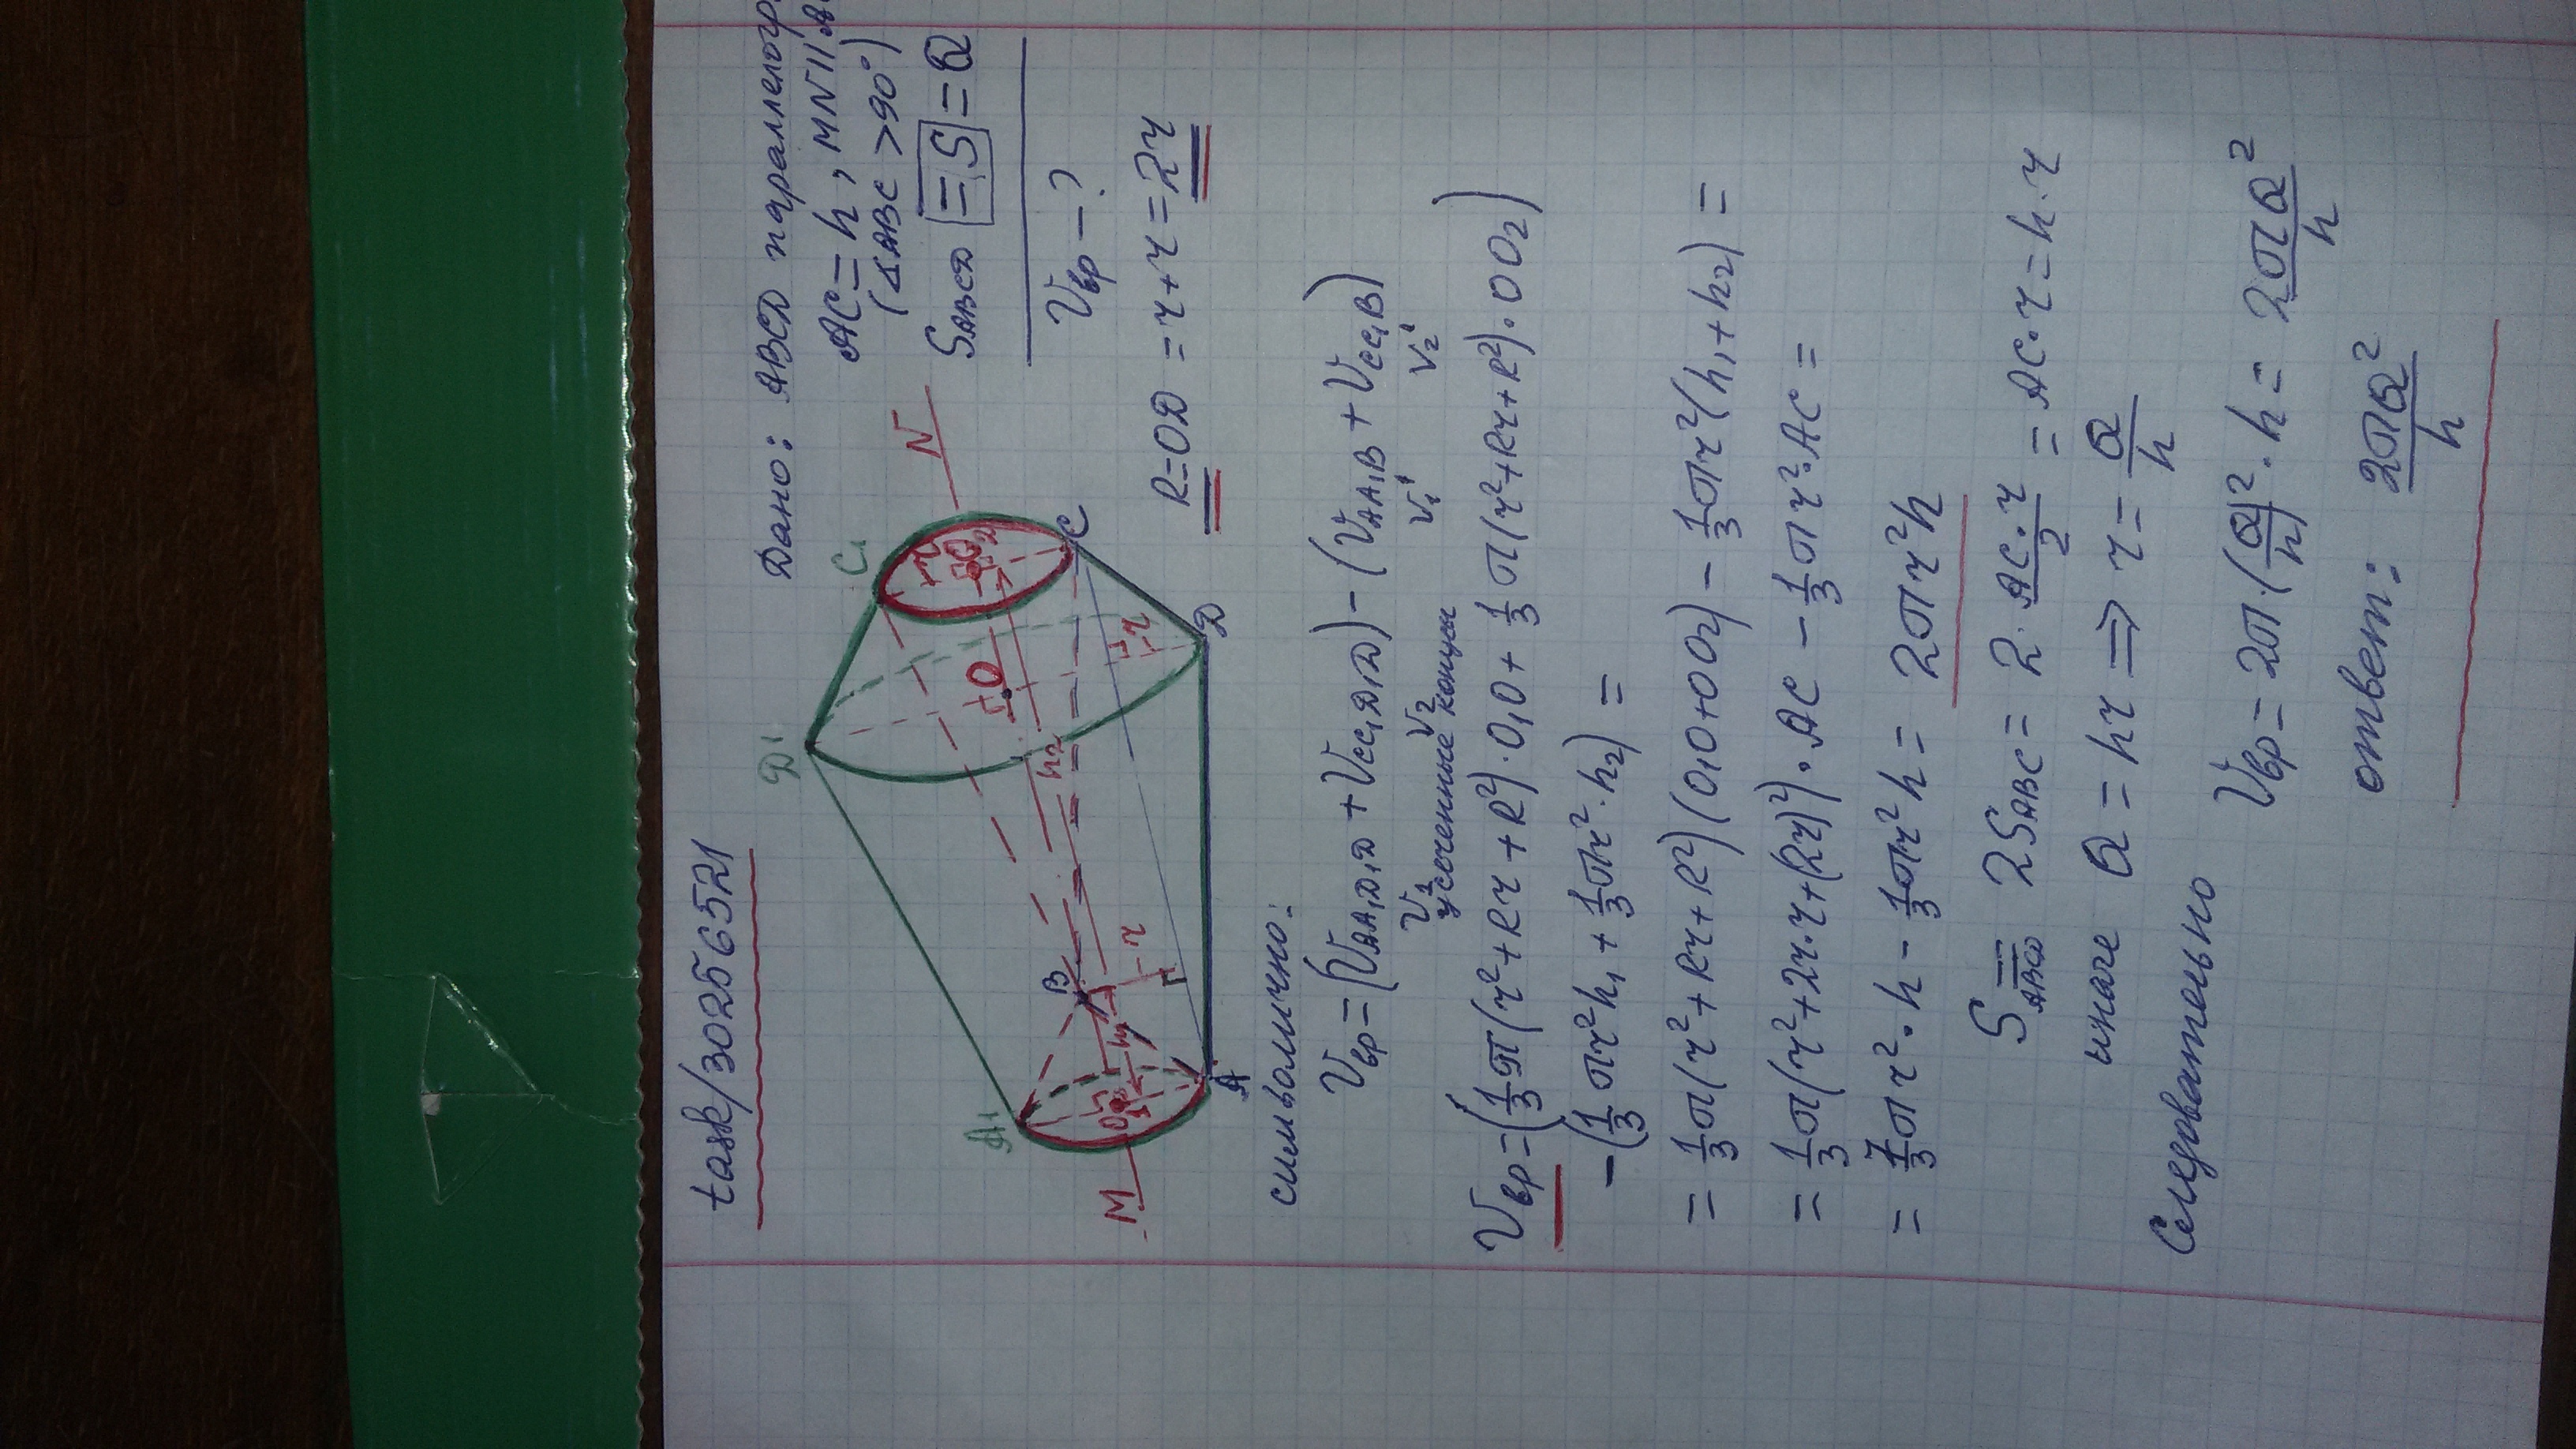 task/30256521
Дано: ABCD параллелогр
AC = h, MN || A
(∠ABC > 90°)
S ABCD = S = Q
Vвр — ?
R = OD = r + r = 2r
D₁
C₁
N
O
O₂
r
C
h₂
D
r
B
r
A₁
h₁
O₁
M
A
символично:
Vвр = (V AA₁D₁D + V CC₁D₁D) − (V AA₁B + V CC₁B)
V₁ V₂ V₁' V₂'
усеченные конусы
Vвр = (1/3 π(r² + Rr + R²)·O₁O + 1/3 π(r² + Rr + R²)·OO₂)
− (1/3 πr²h₁ + 1/3 πr²·h₂) =
= 1/3 π(r² + Rr + R²)(O₁O + OO₂) − 1/3 πr²(h₁ + h₂) =
= 1/3 π(r² + 2r·r + (2r)²)·AC − 1/3 πr²·AC =
= 7/3 πr²·h − 1/3 πr²h = 2πr²h
S ABCD = 2S ABC = 2· AC·r/2 = AC·r = h·r
иначе Q = hr ⇒ r = Q/h
Следовательно Vвр = 2π·(Q/h)²·h = 2πQ²/h
ответ: 2πQ²/h